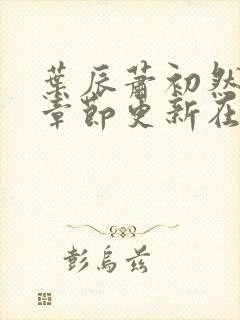 葉辰蕭初然
章節更新在
彭烏茲